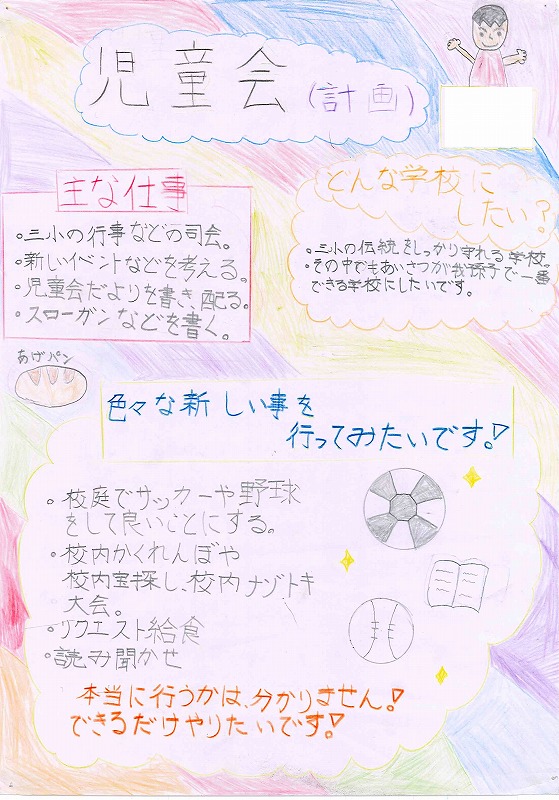 児童会(計画)
主な仕事
。三小の行事などの司会。
。新しいイベントなどを考える。
。児童会だよりを書き、配る。
。スローガンなどを書く。
どんな学校に
したい?
。三小の伝統をしっかり守れる学校。
。その中でもあいさつが我孫子で一番
できる学校にしたいです。
あげパン
色々な新しい事を
行ってみたいです!
。校庭でサッカーや野球
をして良いことにする。
。校内かくれんぼや
校内宝探し、校内ナゾトキ
大会。
。リクエスト給食
。読み聞かせ
本当に行うかは、分かりません!
できるだけやりたいです!